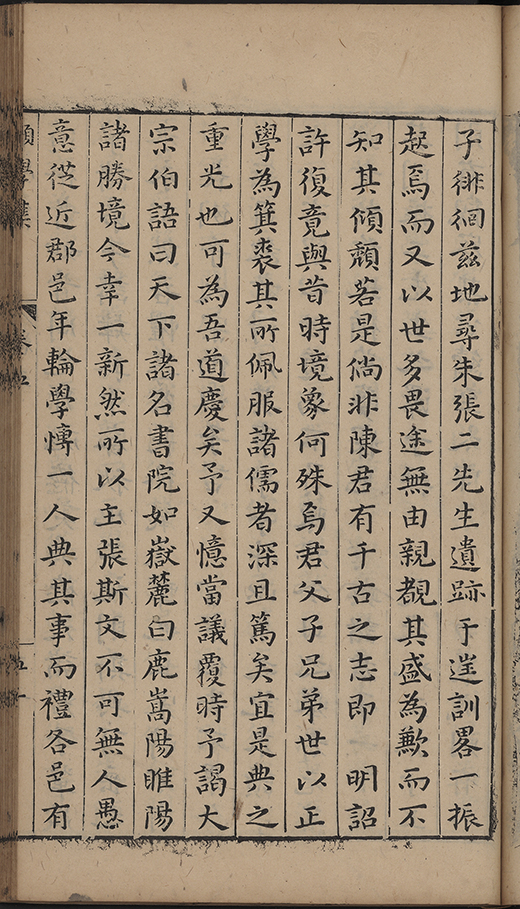 子徘徊茲地尋朱張二先生遺跡于遑訓畧一振
起焉而又以世多畏途無由親覩其盛為歉而不
知其傾頹若是倘非陳君有千古之志即　明詔
許復竟與昔時境象何殊焉君父子兄弟世以正
學為箕裘其所佩服諸儒者深且篤矣宜是典之
重光也可為吾道慶矣予又憶當議覆時予謁大
宗伯語曰天下諸名書院如嶽麓白鹿嵩陽睢陽
諸勝境今幸一新然所以主張斯文不可無人愚
意從近郡邑年輪學慱一人典其事而禮各邑有
學集
卷五